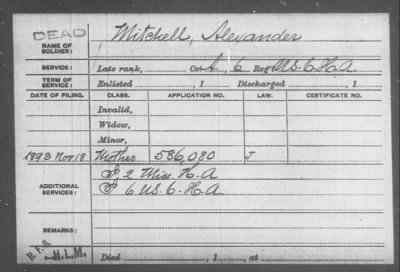 DEAD
NAME OF SOLDIER: Mitchell, Alexander
SERVICE: Late rank, Co. , 6 Reg't U.S.C.H.A.
TERM OF SERVICE: Enlisted , 1 Discharged , 1
DATE OF FILING. CLASS. APPLICATION NO. LAW. CERTIFICATE NO.
Invalid,
Widow,
Minor,
1893 Nov 18. Mother 586,080 J
ADDITIONAL SERVICES: 2 Miss. H.A
6 U.S.C.H.A
REMARKS:
H.L.M. Died , 1 , at